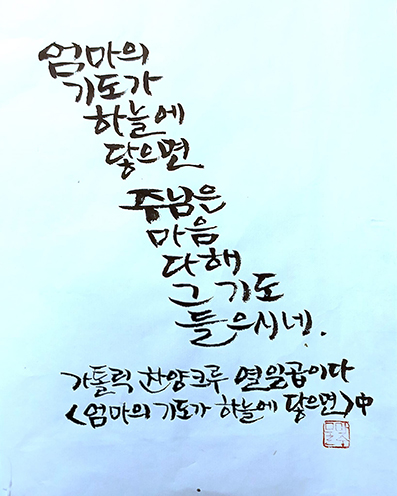 엄마의
기도가
하늘에
닿으면
주님은
마음
다해
그 기도
들으시네.
가톨릭 찬양크루 열일곱이다
<엄마의 기도가 하늘에 닿으면>中